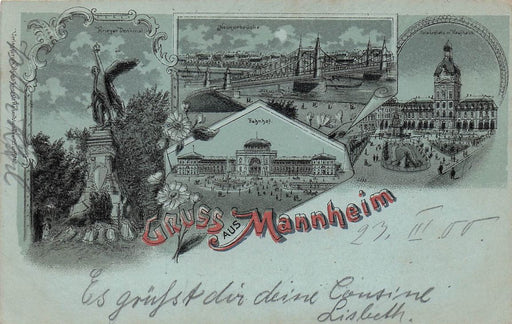 Krieger Denkmal
Neckarbrücke
Bahnhof.
GRUSS AUS Mannheim
23. III 00.
Es grüßst dir deine Cousine
Lisbeth.